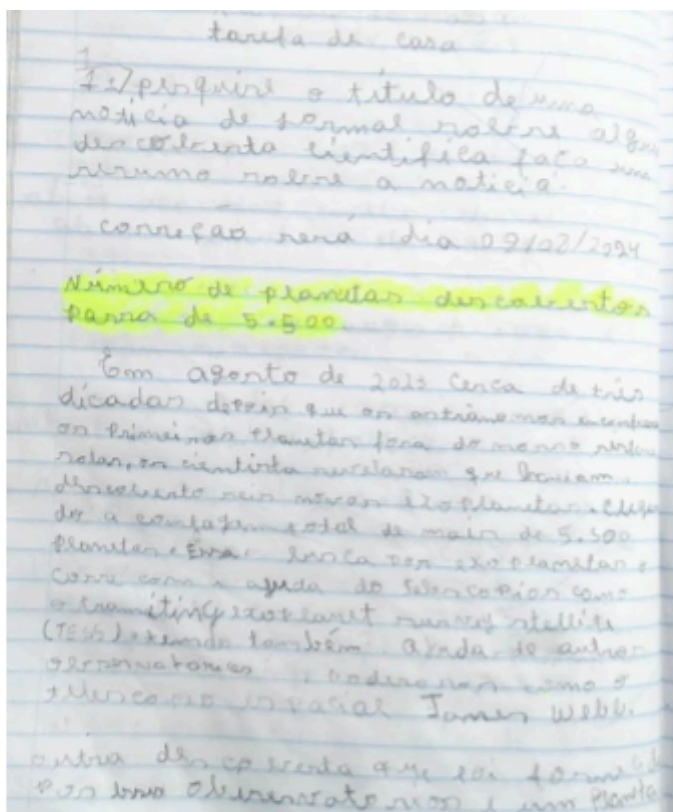 tarefa de casa
1
1:) pesquise o título de uma
notícia de jornal sobre alguma
descoberta científica faça um
resumo sobre a notícia.
correção será dia 09/02/2024
Número de planetas descobertos
passa de 5.500
Em agosto de 2023 cerca de três
décadas depois que os astrônomos
os primeiros planetas fora do nosso sistema
solar, os cientista revelaram que haviam
descoberto seis novos exoplanetas.
do a contagem total de mais de 5.500
planetas. Essa busca por exoplanetas o
corre com a ajuda do telescopios como
o transiting exoplanet survey stellite
(TESS) tendo também ajuda de outros
observatórios poderosos como o
telescopio espacial James Webb.
outra descoberta que foi
por esses observatorios é um Planeta